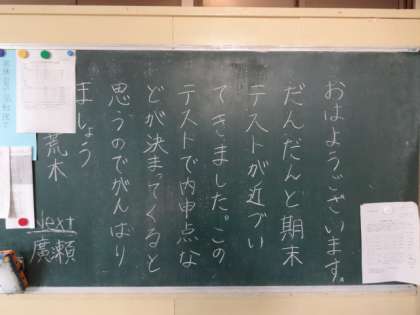 おはようございます。
だんだんと期末
テストが近づい
てきました。この
テストで内申点な
どが決まってくると
思うのでがんばり
ましょう
荒木
Next
廣瀬